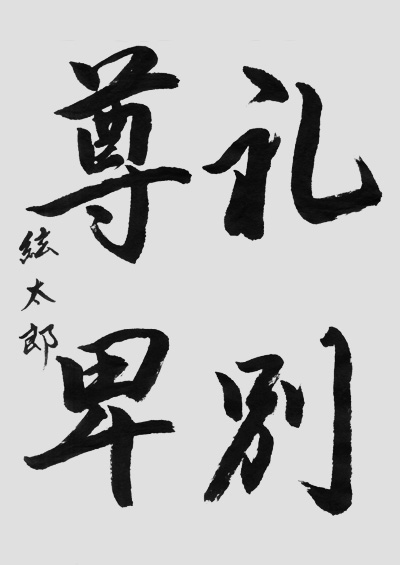 礼別
尊卑
絃太郎